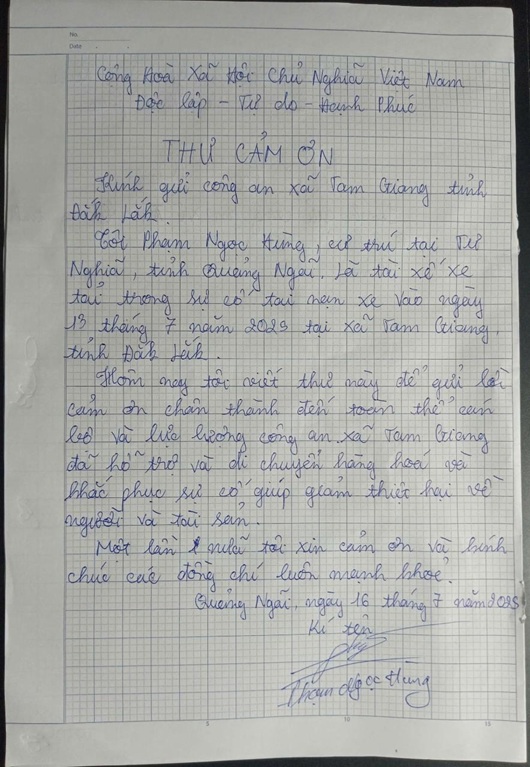 No.
Date
Cộng Hoà Xã Hội Chủ Nghĩa Việt Nam
Độc lập - Tự do - Hạnh Phúc
THƯ CẢM ƠN
Kính gửi công an xã Tam Giang tỉnh
Đăk Lăk.
Tôi Phạm Ngọc Hùng, cư trú tại Tư
Nghĩa, tỉnh Quảng Ngãi. Là tài xế xe
tải trong sự cố tai nạn xe vào ngày
13 tháng 7 năm 2025 tại xã Tam Giang,
tỉnh Đăk Lăk.
Hôm nay tôi viết thư này để gửi lời
cảm ơn chân thành đến toàn thể cán
bộ và lực lượng công an xã Tam Giang
đã hỗ trợ và di chuyển hàng hoá và
khắc phục sự cố giúp giảm thiệt hại về
người và tài sản.
Một lần nữa tôi xin cảm ơn và kính
chúc các đồng chí luôn mạnh khoẻ.
Quảng Ngãi, ngày 16 tháng 7 năm 2025
Kí tên
Phạm Ngọc Hùng
5 10 15